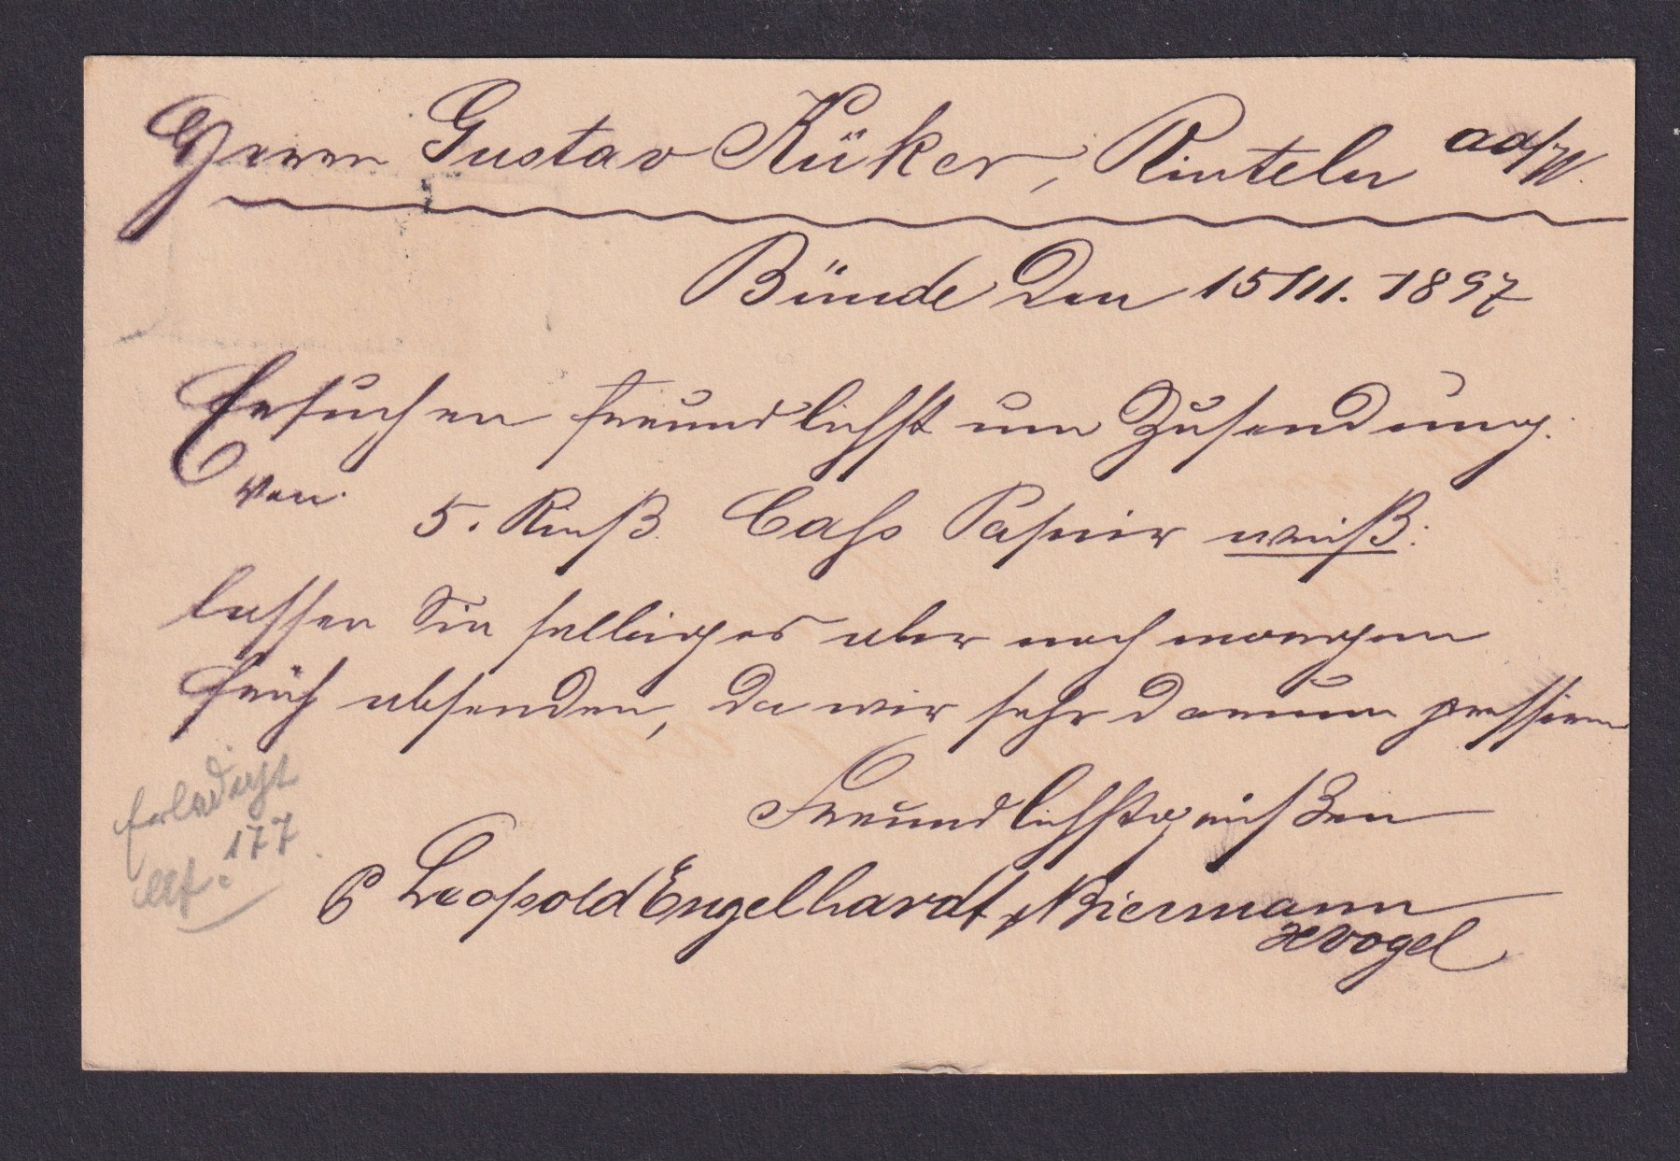 Herrn Gustav Küker, Rinteln ad/W.
Bünde den 15/III. 1897
Ersuchen freundlichst um Zusendung
von 5. Rieß Papier weiß.
lassen Sie selbiges aber noch morgen
früh absenden, da wir sehr darum pressiren
Freundlichst grüßen
Leopold Engelhardt & Biermann
HVogel
Erledigt
17 7